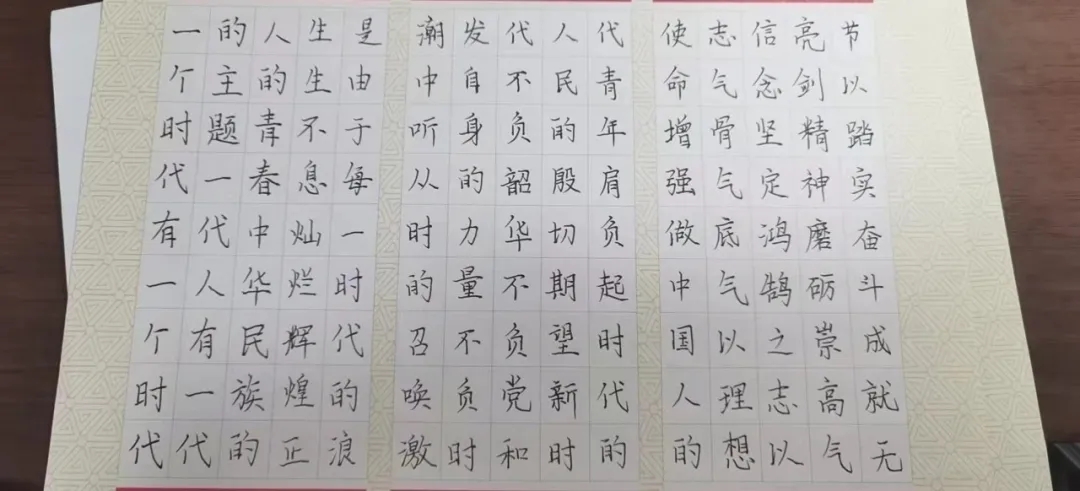 一个时代有一个时代
的主题一代人有一代
人的青春中华民族的
生生不息灿烂辉煌正
是由于每一时代的浪
潮中听从时的召唤激
发自身的力量不负时
代不负韶华不负党和
人民的殷切期望新时
代青年肩负起时代的
使命增强做中国人的
志气骨气底气以理想
信念坚定鸿鹄之志以
亮剑精神磨砺崇高气
节以踏实奋斗成就无